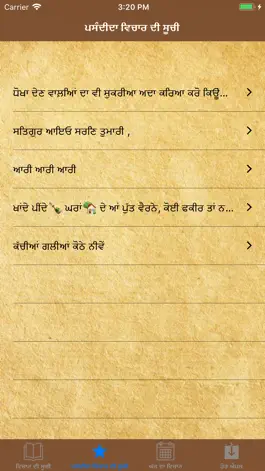 Carrier 3:20 PM
ਪਸੰਦੀਦਾ ਵਿਚਾਰ ਦੀ ਸੂਚੀ
ਧੋਖਾ ਦੇਣ ਵਾਲਿਆਂ ਦਾ ਵੀ ਸ਼ੁਕਰੀਆ ਅਦਾ ਕਰਿਆ ਕਰੋ ਕਿਉ...
ਸਤਿਗੁਰ ਆਇਓ ਸਰਣਿ ਤੁਮਾਰੀ ,
ਆਰੀ ਆਰੀ ਆਰੀ
ਖਾਂਦੇ ਪੀਂਦੇ🍾 ਘਰਾਂ🏡 ਦੇ ਆਂ ਪੁੱਤ ਵੈਰਨੇ, ਕੋਈ ਫਕੀਰ ਤਾਂ ਨ...
ਕੱਚੀਆਂ ਗਲੀਆਂ ਕੋਠੇ ਨੀਵੇਂ
ਵਿਚਾਰ ਦੀ ਸੂਚੀ ਅੱਜ ਦਾ ਵਿਚਾਰ